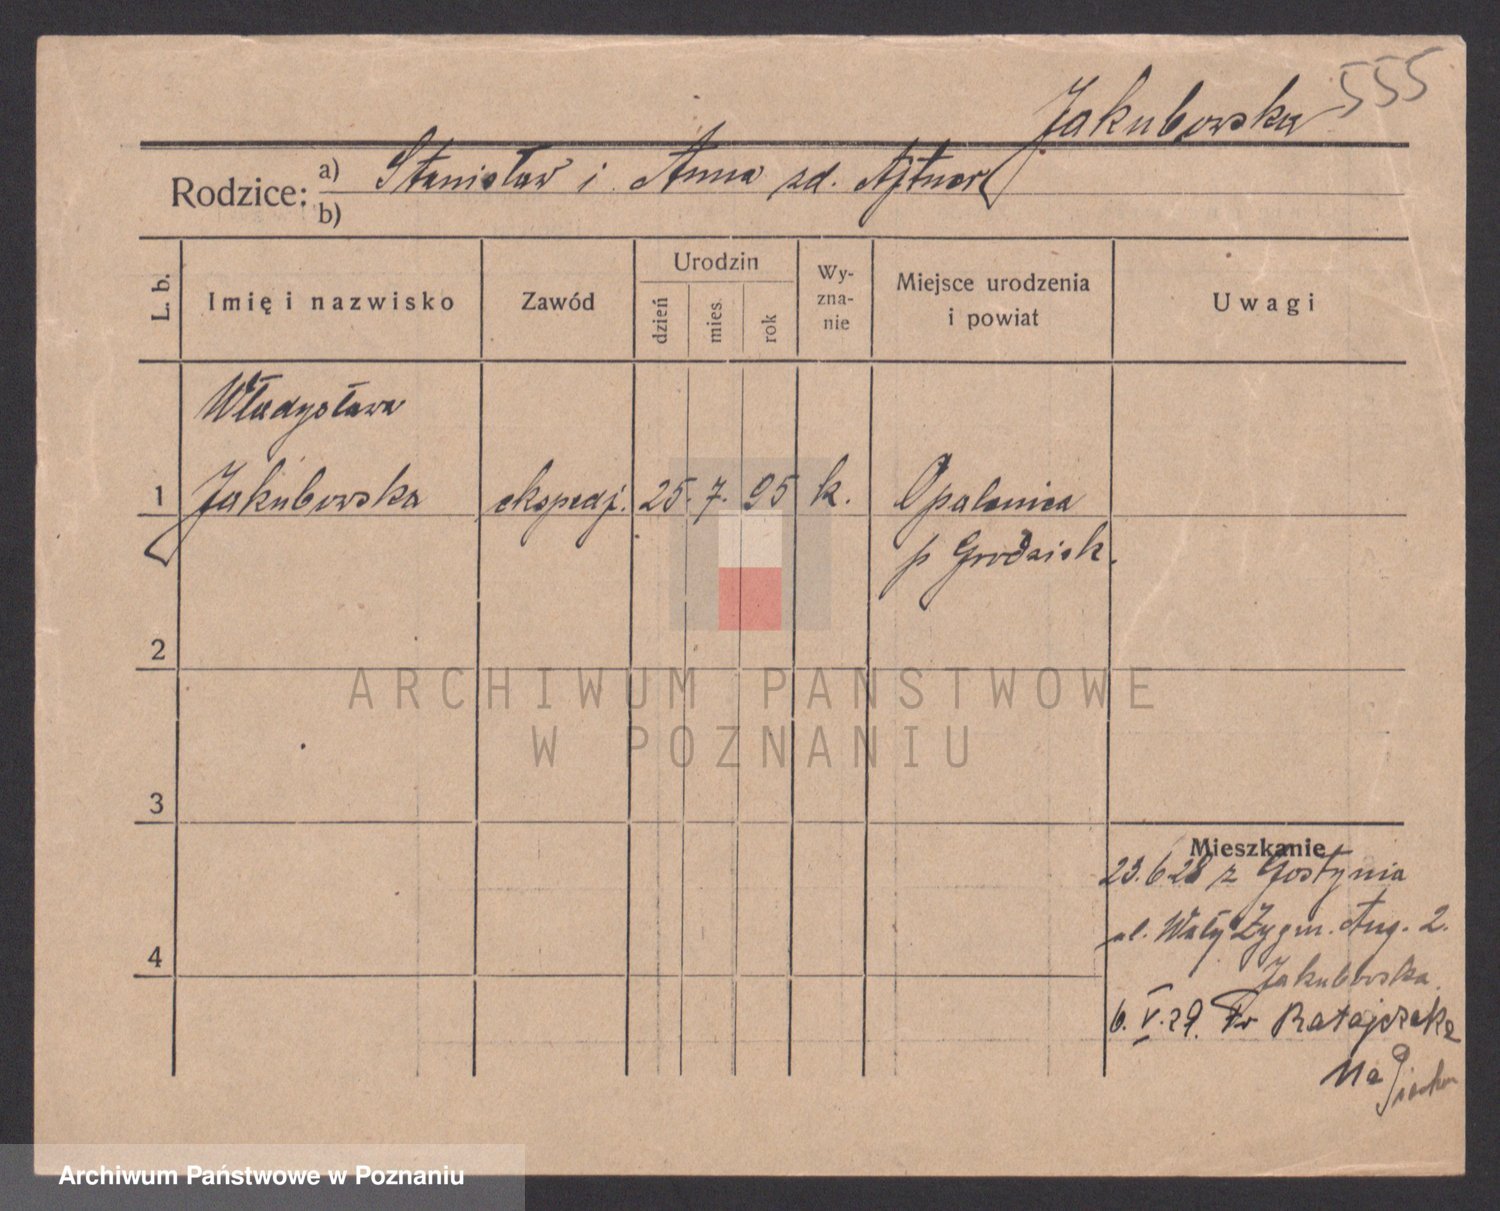 555
Jakubowska
Rodzice: a) Stanisław i Anna zd. Ajtner
b)
L. b.
Imię i nazwisko
Zawód
Urodzin
dzień
mies.
rok
Wy-
zna-
nie
Miejsce urodzenia
i powiat
Uwagi
Władysława
1 Jakubowska ekspedj. 25. 7. 95 k. Opalenica
p Grodzisk.
2
3
4
Mieszkanie
23.6 28 z Gostynia
ul. Wały Zygm. Aug. 2.
Jakubowska.
6. V. 29. Fr Ratajczaka
11a
ARCHIWUM PAŃSTWOWE
W POZNANIU
Archiwum Państwowe w Poznaniu